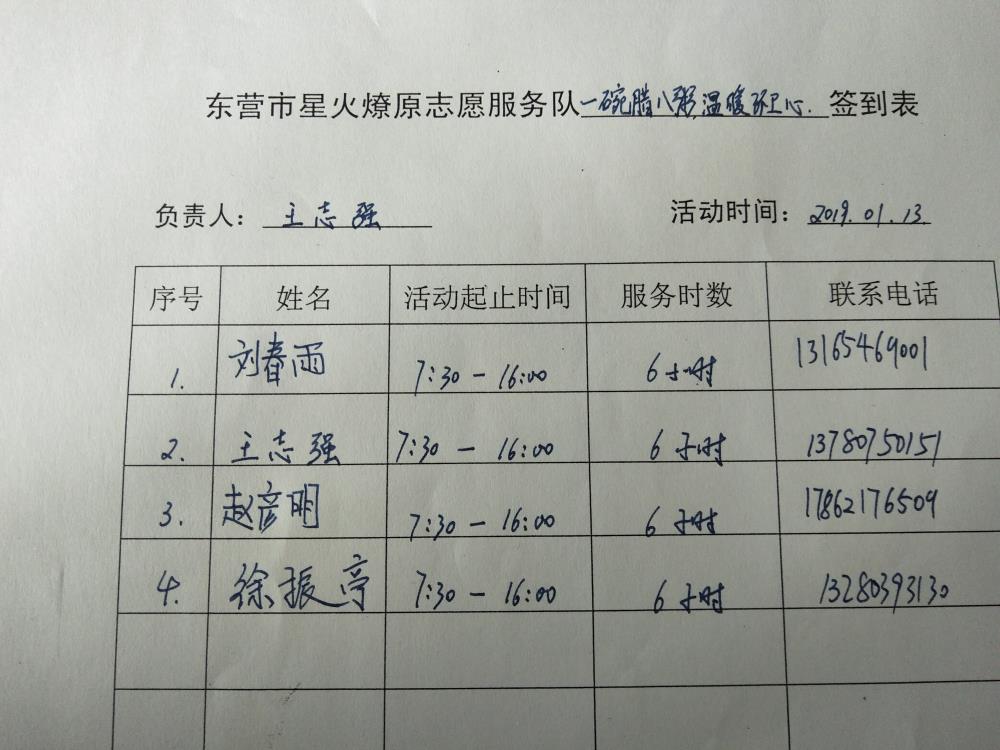 东营市星火燎原志愿服务队一碗腊八粥,温暖环卫心.签到表
负责人: 王志强 活动时间: 2019.01.13.
序号 姓名 活动起止时间 服务时数 联系电话
1. 刘春雨 7:30-16:00 6小时 13165469001
2. 王志强 7:30-16:00 6小时 13780750151
3. 赵彦明 7:30-16:00 6小时 17862176509
4. 徐振亭 7:30-16:00 6小时 13280393130